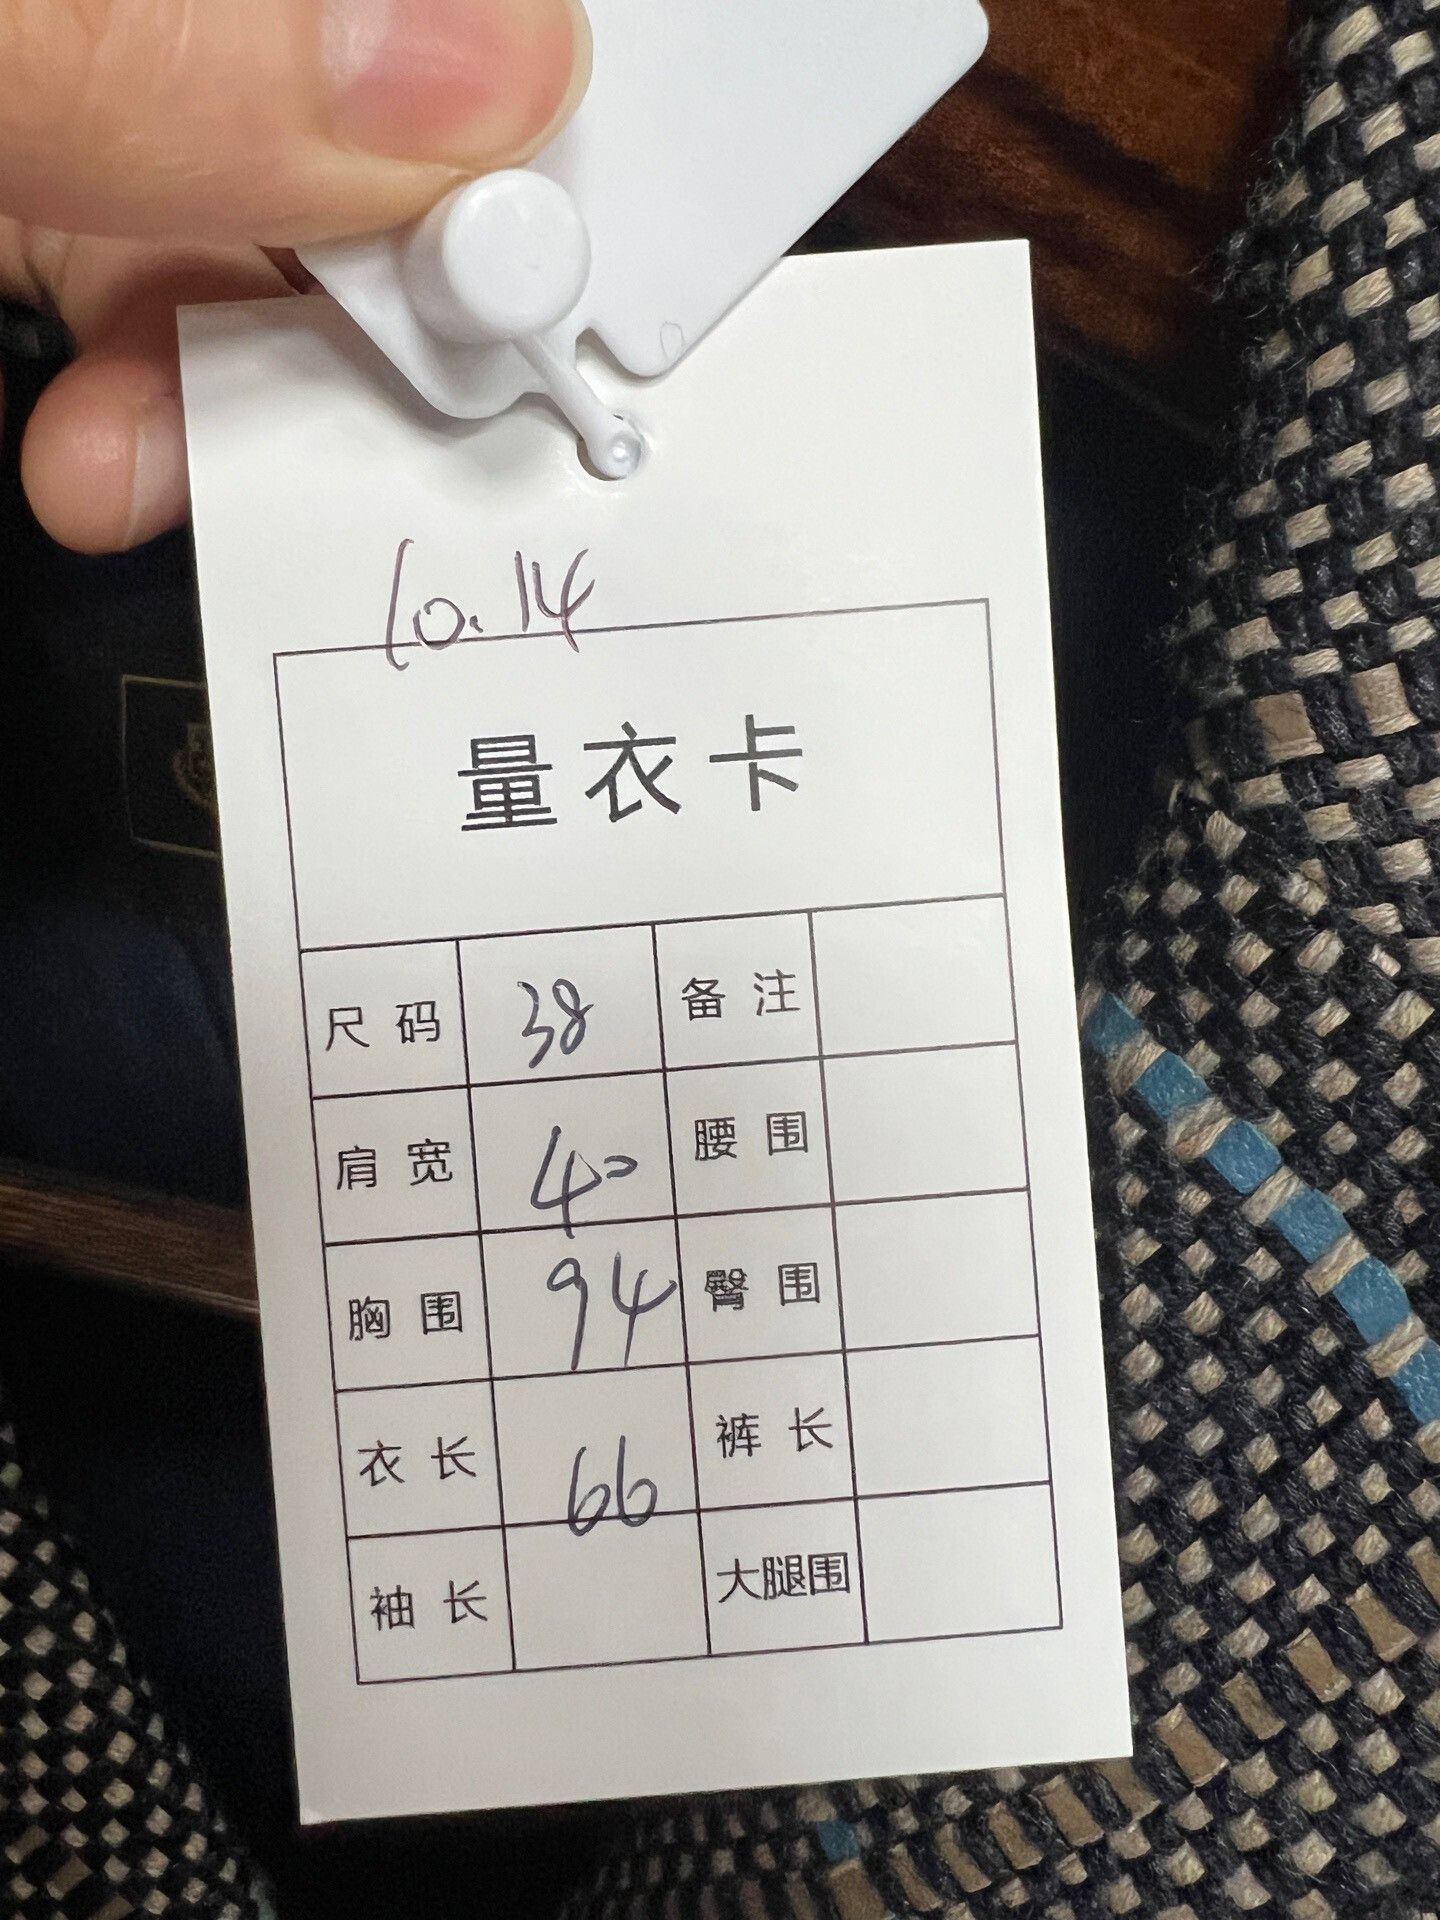 10.14
量衣卡
尺码 38 备注
肩宽 40 腰围
胸围 94 臀围
衣长 66 裤长
袖长 大腿围